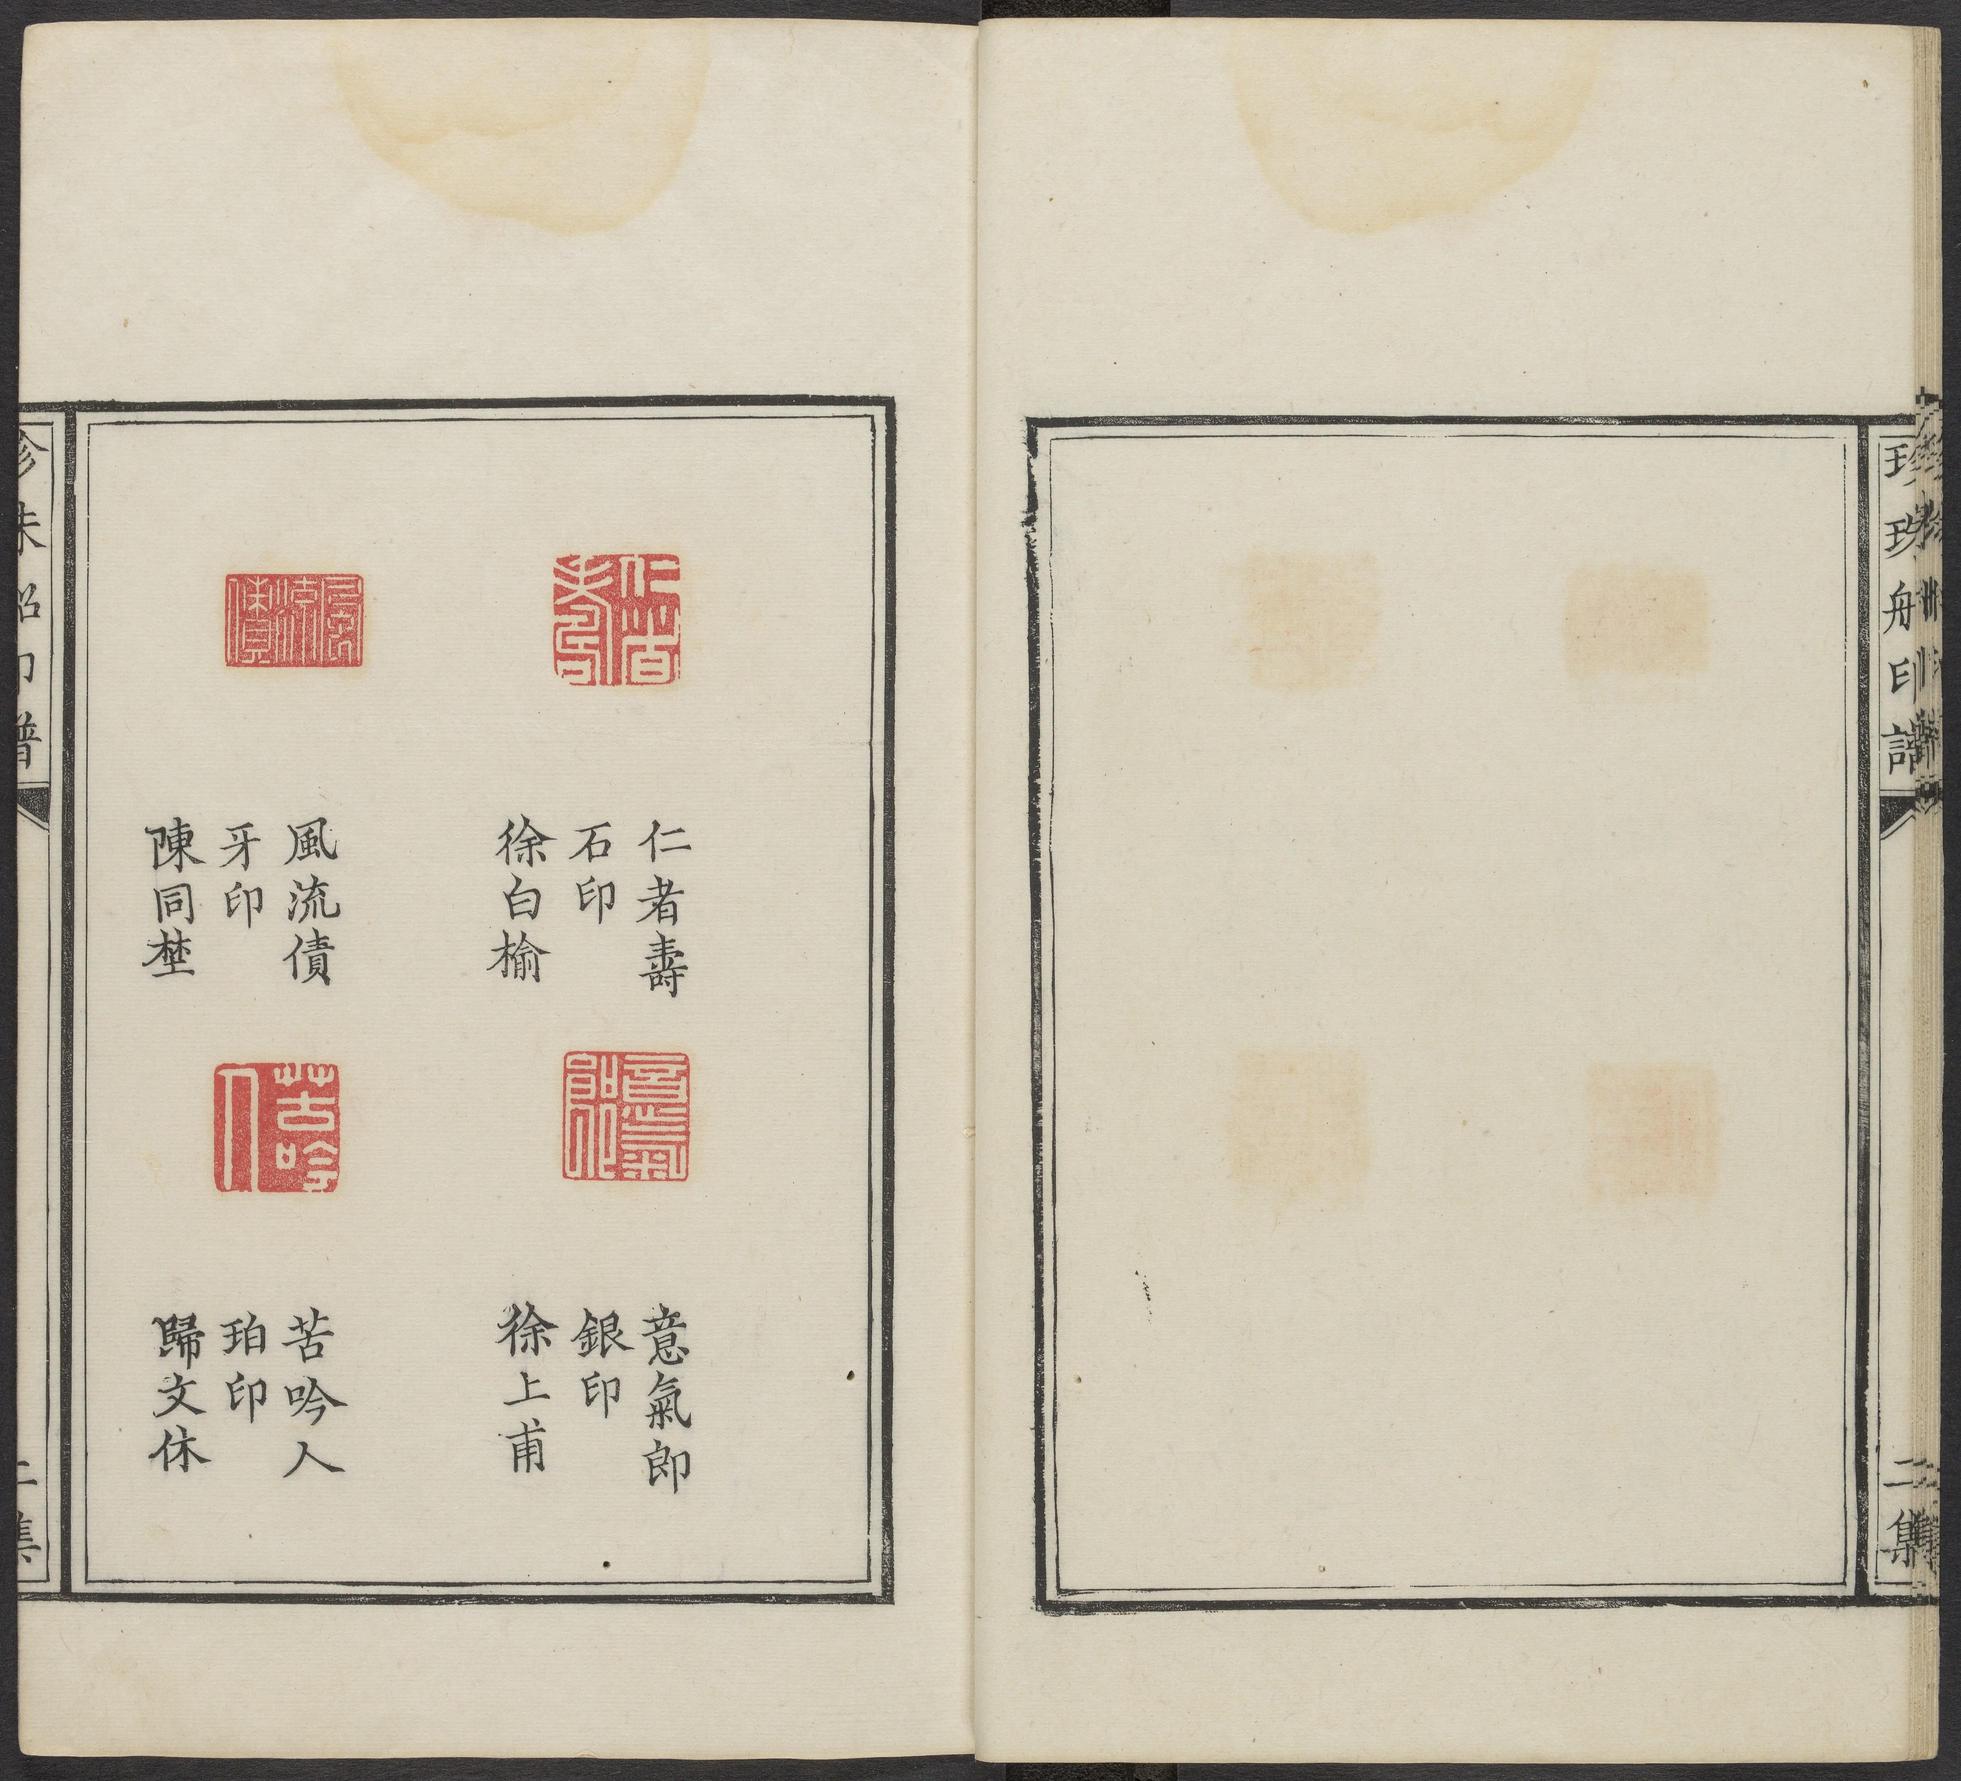 珍珠船印譜
二集
仁者壽
石印
徐白榆
意氣郎
銀印
徐上甫
風流債
牙印
陳同埜
苦吟人
珀印
歸文休
珍珠船印譜
二集